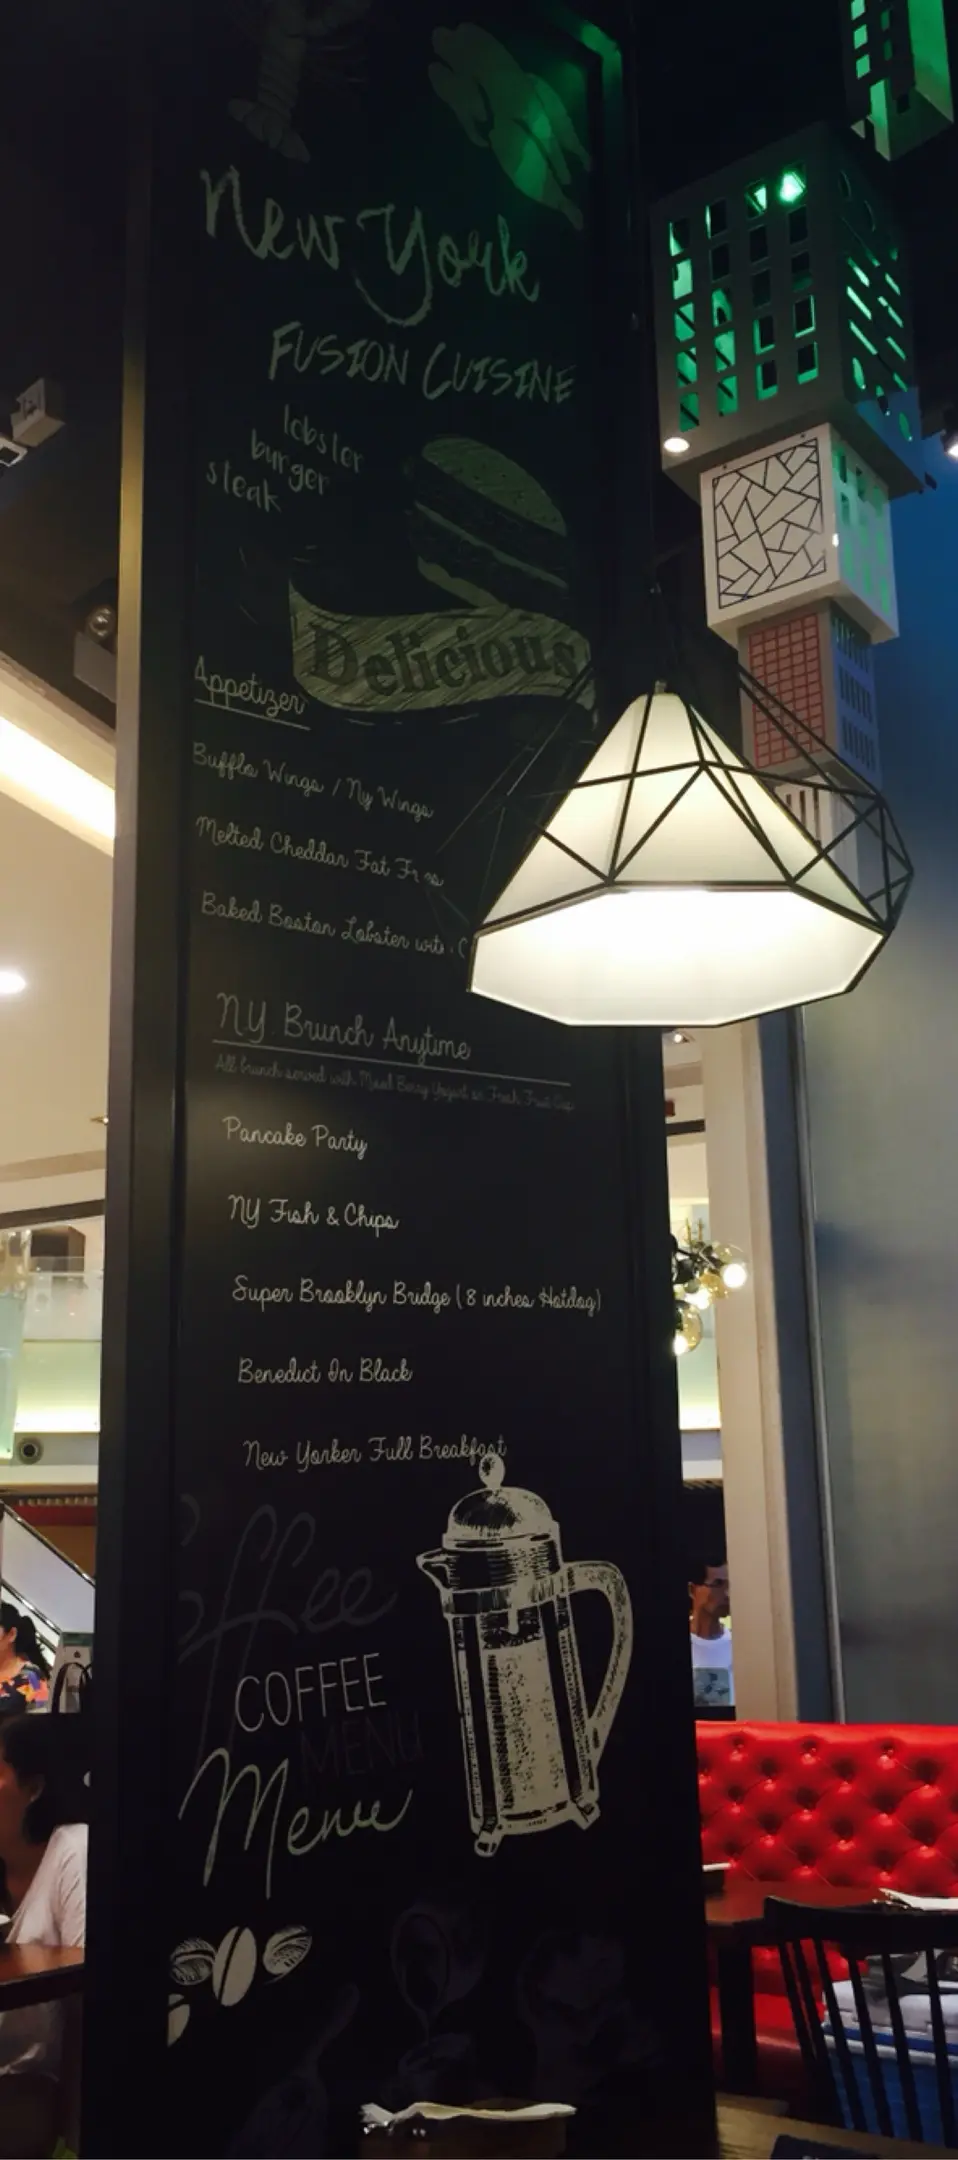 New York
FUSION CUISINE
lobster
burger
steak
Delicious
Appetizer
Bufflo Wings / Ny Wings
Melted Cheddar Fat
Baked Boston Lobster with
N.Y. Brunch Anytime
All brunch served with Mixed Berry Yogurt or Fresh Fruit Cup
Pancake Party
NY Fish & Chips
Super Brooklyn Bridge (8 inches Hotdog)
Benedict In Black
New Yorker Full Breakfast
Coffee
COFFEE
MENU
Menu